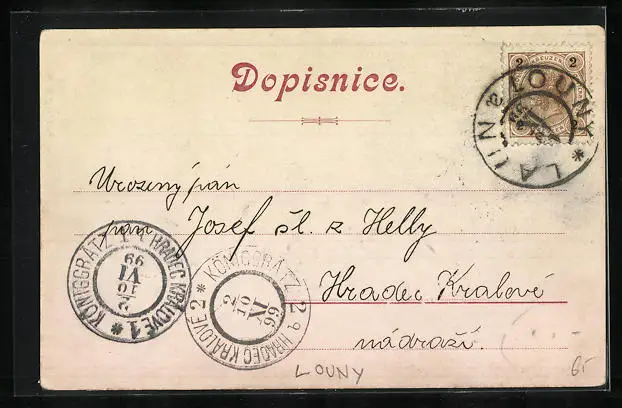 Dopisnice.
2 KREUZER 2
LAUN & LOUNY *
Urozený pán
pán Josef šl. z Helly
Hradec Králové
nádraží.
KÖNIGGRÄTZ 1 HRADEC KRÁLOVÉ 1 *
2/10 VI 99
* KÖNIGGRÄTZ 2 HRADEC KRÁLOVÉ 2
99
LOUNY